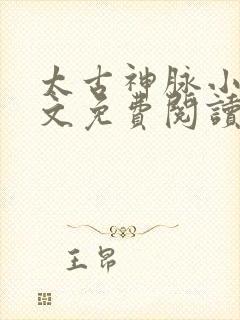 太古神脉小
文免費閱讀
王昂